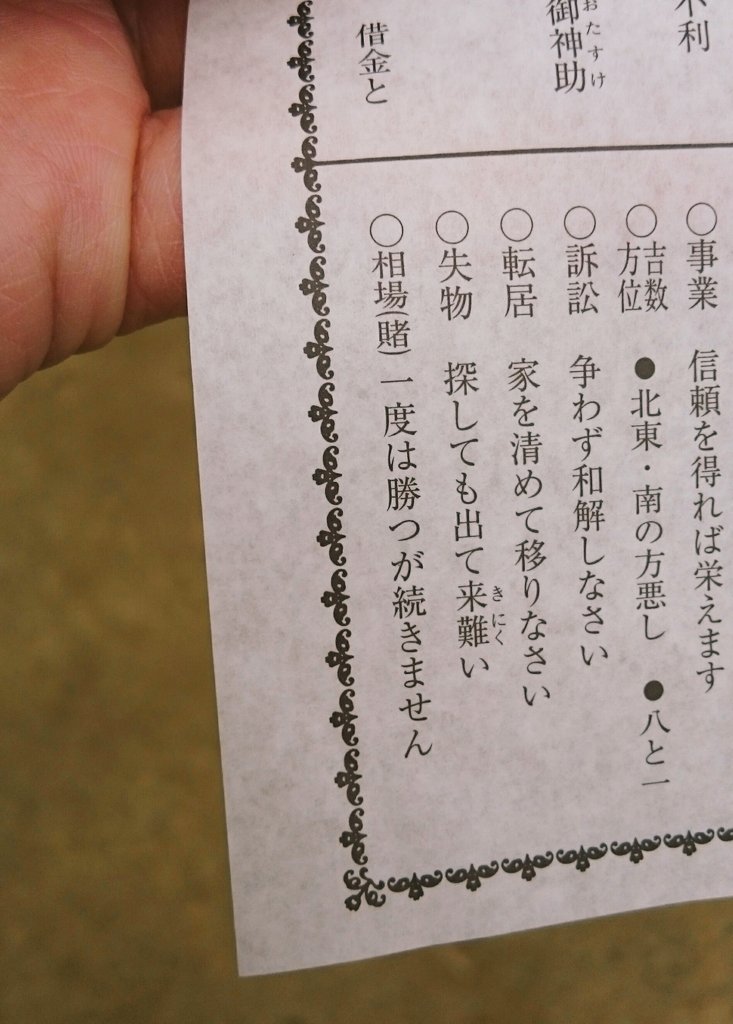 不利
御神助
おたすけ
借金と
○事業 信頼を得れば栄えます
○吉数方位 ●北東・南の方悪し ●八と一
○訴訟 争わず和解しなさい
○転居 家を清めて移りなさい
○失物 探しても出て来難い
きにく
○相場(賭) 一度は勝つが続きません